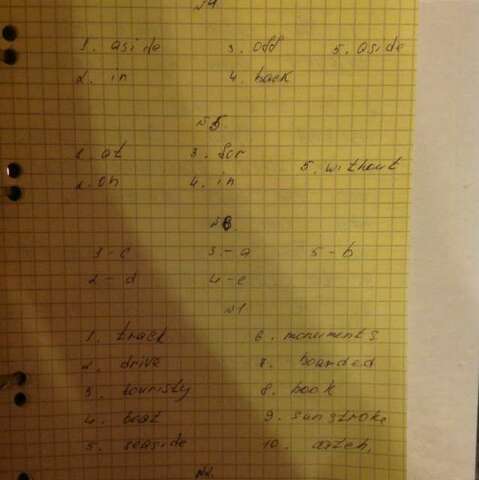 №4
1. aside 3. off 5. aside
2. in 4. back
№5.
1. at 3. for
5. without
2. on 4. in
№6.
1 - c 3. - a 5 - b
2 - d 4 - e
№1
1. track 6. monuments
2. drive 7. boarded
3. touristy 8. book
4. boat 9. sunstroke
5. seaside 10.
№2.